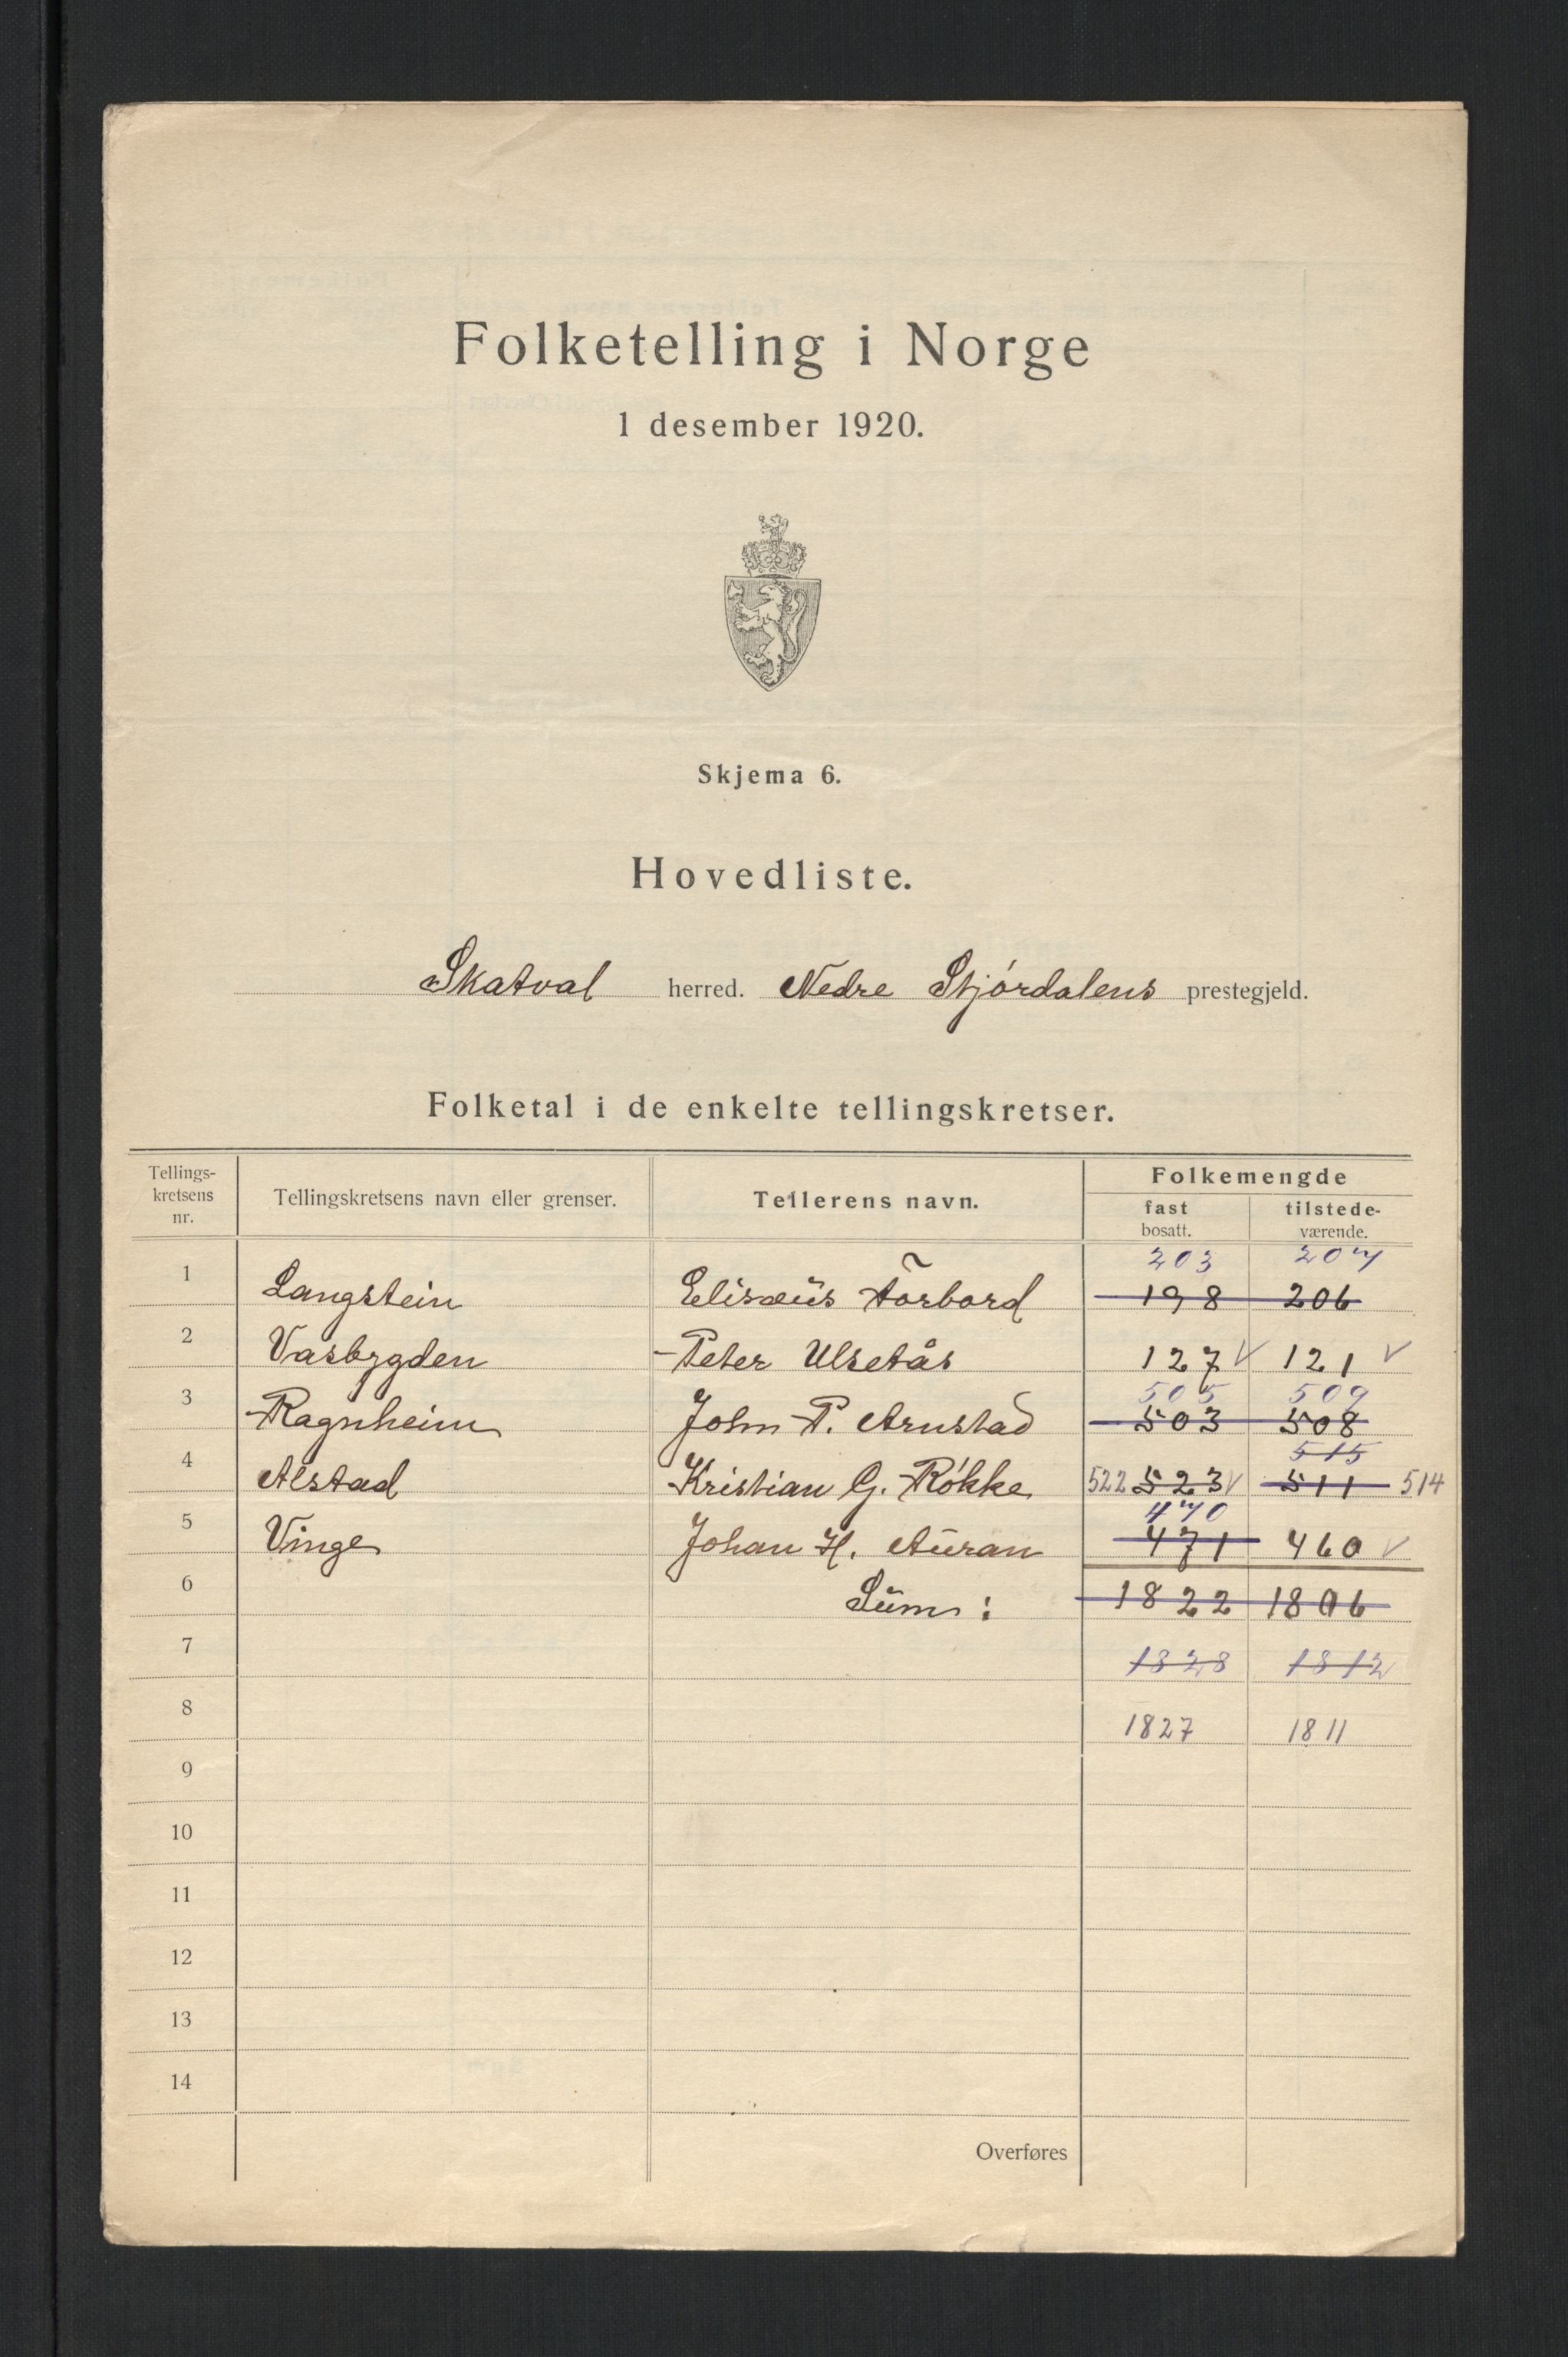 Folketelling i Norge
1 desember 1920.
Skjema 6.
Hovedliste.
Skatval herred. Nedre Stjórdalens prestegjeld.
Folketal i de enkelte tellingskretser.
Tellings-
kretsens
nr.
Tellingskretsens navn eller grenser.
Tellerens navn.
Folkemengde
fast
bosatt.
tilstede-
værende.
203 207
1 Langstein Elisæus Forbord 198 206
2 Vasbygden Peter Ulsetås 127 121
505 509
3 Ragnheim John P. Arnstad 503 508
515
4 Alstad Kristian G. Rókke 522 523 511 514
470
5 Vinge Johan H. Auran 471 460
6 Sum: 1822 1806
7 1828 1812
8 1827 1811
9
10
11
12
13
14
Overføres